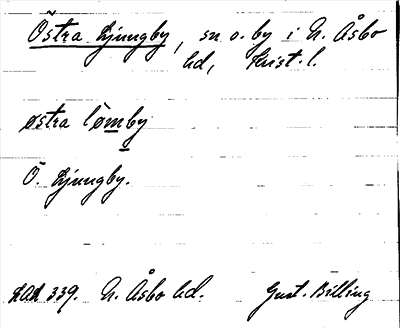 Östra Ljungby, sn o. by i N. Åsbo
hd, Krist. l.
østra lömby
Ö. Ljungby.
LAL 339. N. Åsbo hd. Gust. Billing